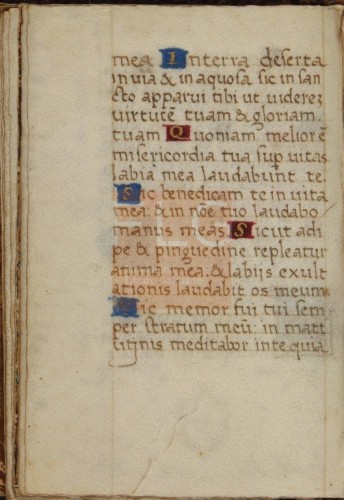 mea In terra deserta
in uia & in aquosa sic in san
cto apparui tibi ut uiderez
uirtutē tuam & gloriam.
tuam Quoniam meliorē
misericordia tua sup uitas
labia mea laudabunt te.
Sic benedicam te in uita
mea: & in nōe tuo laudabo
manus meas Sicut adi
pe & pinguedine repleatur
anima mea. & labijs exult
ationis laudabit os meum
Sic memor fui tui sem
per stratum meū: in matt
utinis meditabor in te quia